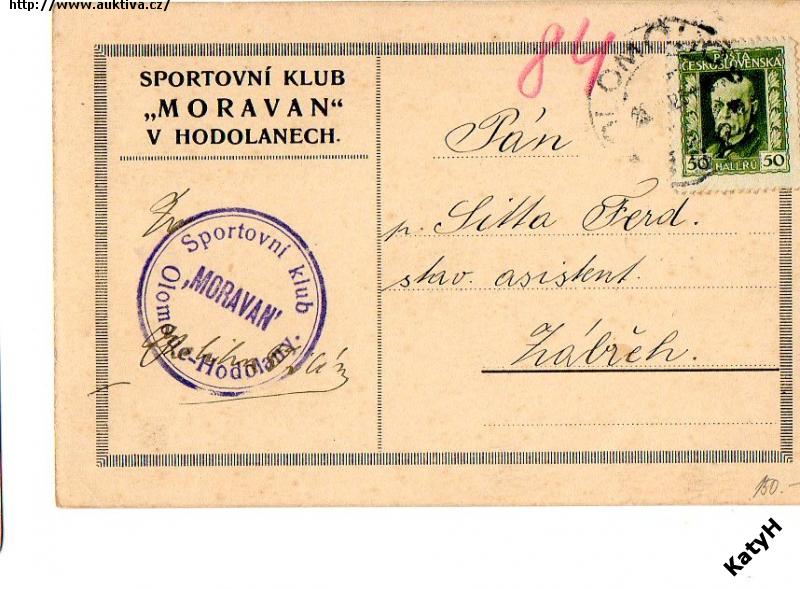 http://www.auktiva.cz/
SPORTOVNÍ KLUB
„MORAVAN“
V HODOLANECH.
84
OLOMOUC
ČESKOSLOVENSKÁ
50 HALÉŘŮ 50
Pán
p. Sitta Ferd.
stav. asistent.
Zábřeh.
Za
Sportovní klub
„MORAVAN“
Olomouc-Hodolany.
150.-
KatyH